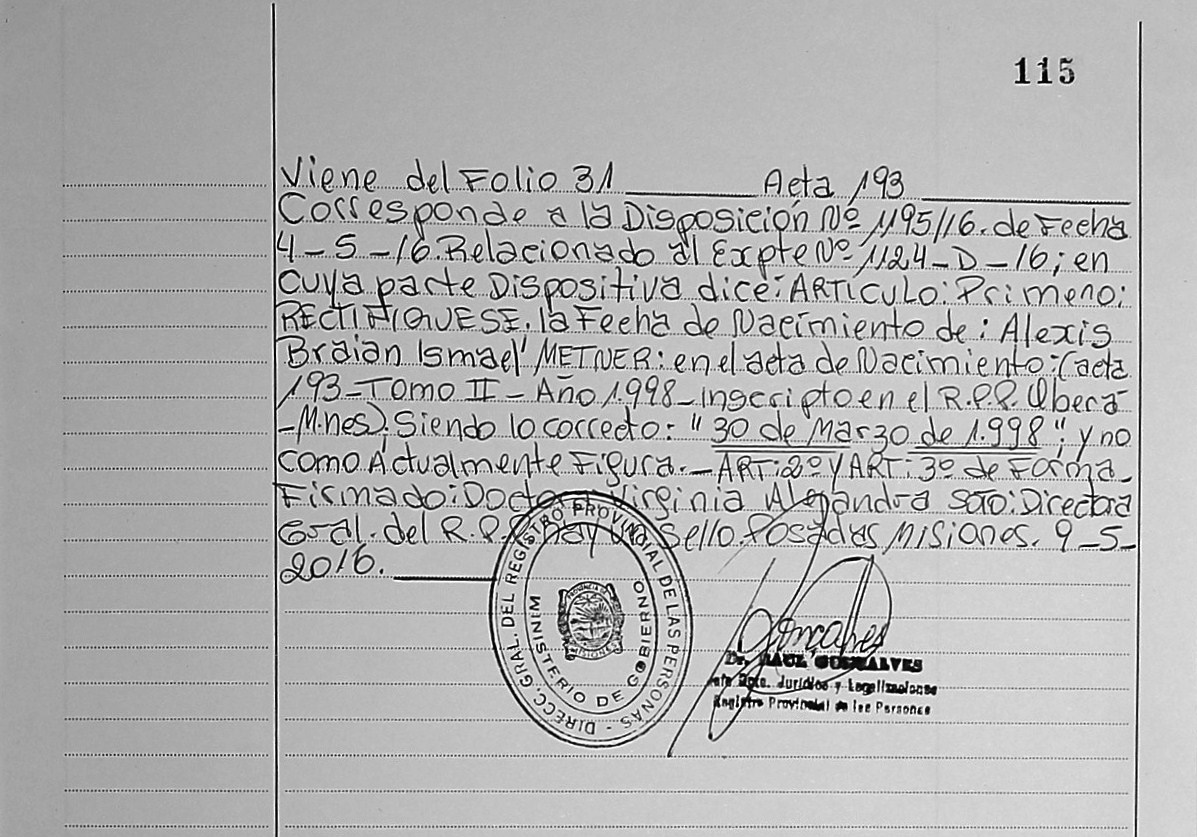 115
Viene del Folio 31 Acta 193
Corresponde a la Disposición Nº 1195/16. de Fecha
4-5-16. Relacionado al Expte Nº 1124-D-16; en
Cuya parte Dispositiva dice: ARTICULO: Primero:
RECTIFIQUESE. la Fecha de Nacimiento de: Alexis
Braian Ismael METNER: en el acta de Nacimiento: (acta
193-Tomo II - Año 1.998-Inscripto en el R.P.P. Oberá
-Mnes). Siendo lo correcto: "30 de Marzo de 1.998"; y no
como Actualmente Figura.- ART: 2º y ART: 3º de Forma-
Firmado: Virginia Alejandra Soto: Directora
Gral. del R.P.P. Hay sello. Posadas Misiones. 9-5-
2016.
DIRECC. GRAL. DEL REGISTRO PROVINCIAL DE LAS PERSONAS -
MINISTERIO DE GOBIERNO
MISIONES
Goncalves
Dr. RAUL GONCALVES
Jefe Dpto. Jurídico y Legalizaciones
Registro Provincial de las Personas